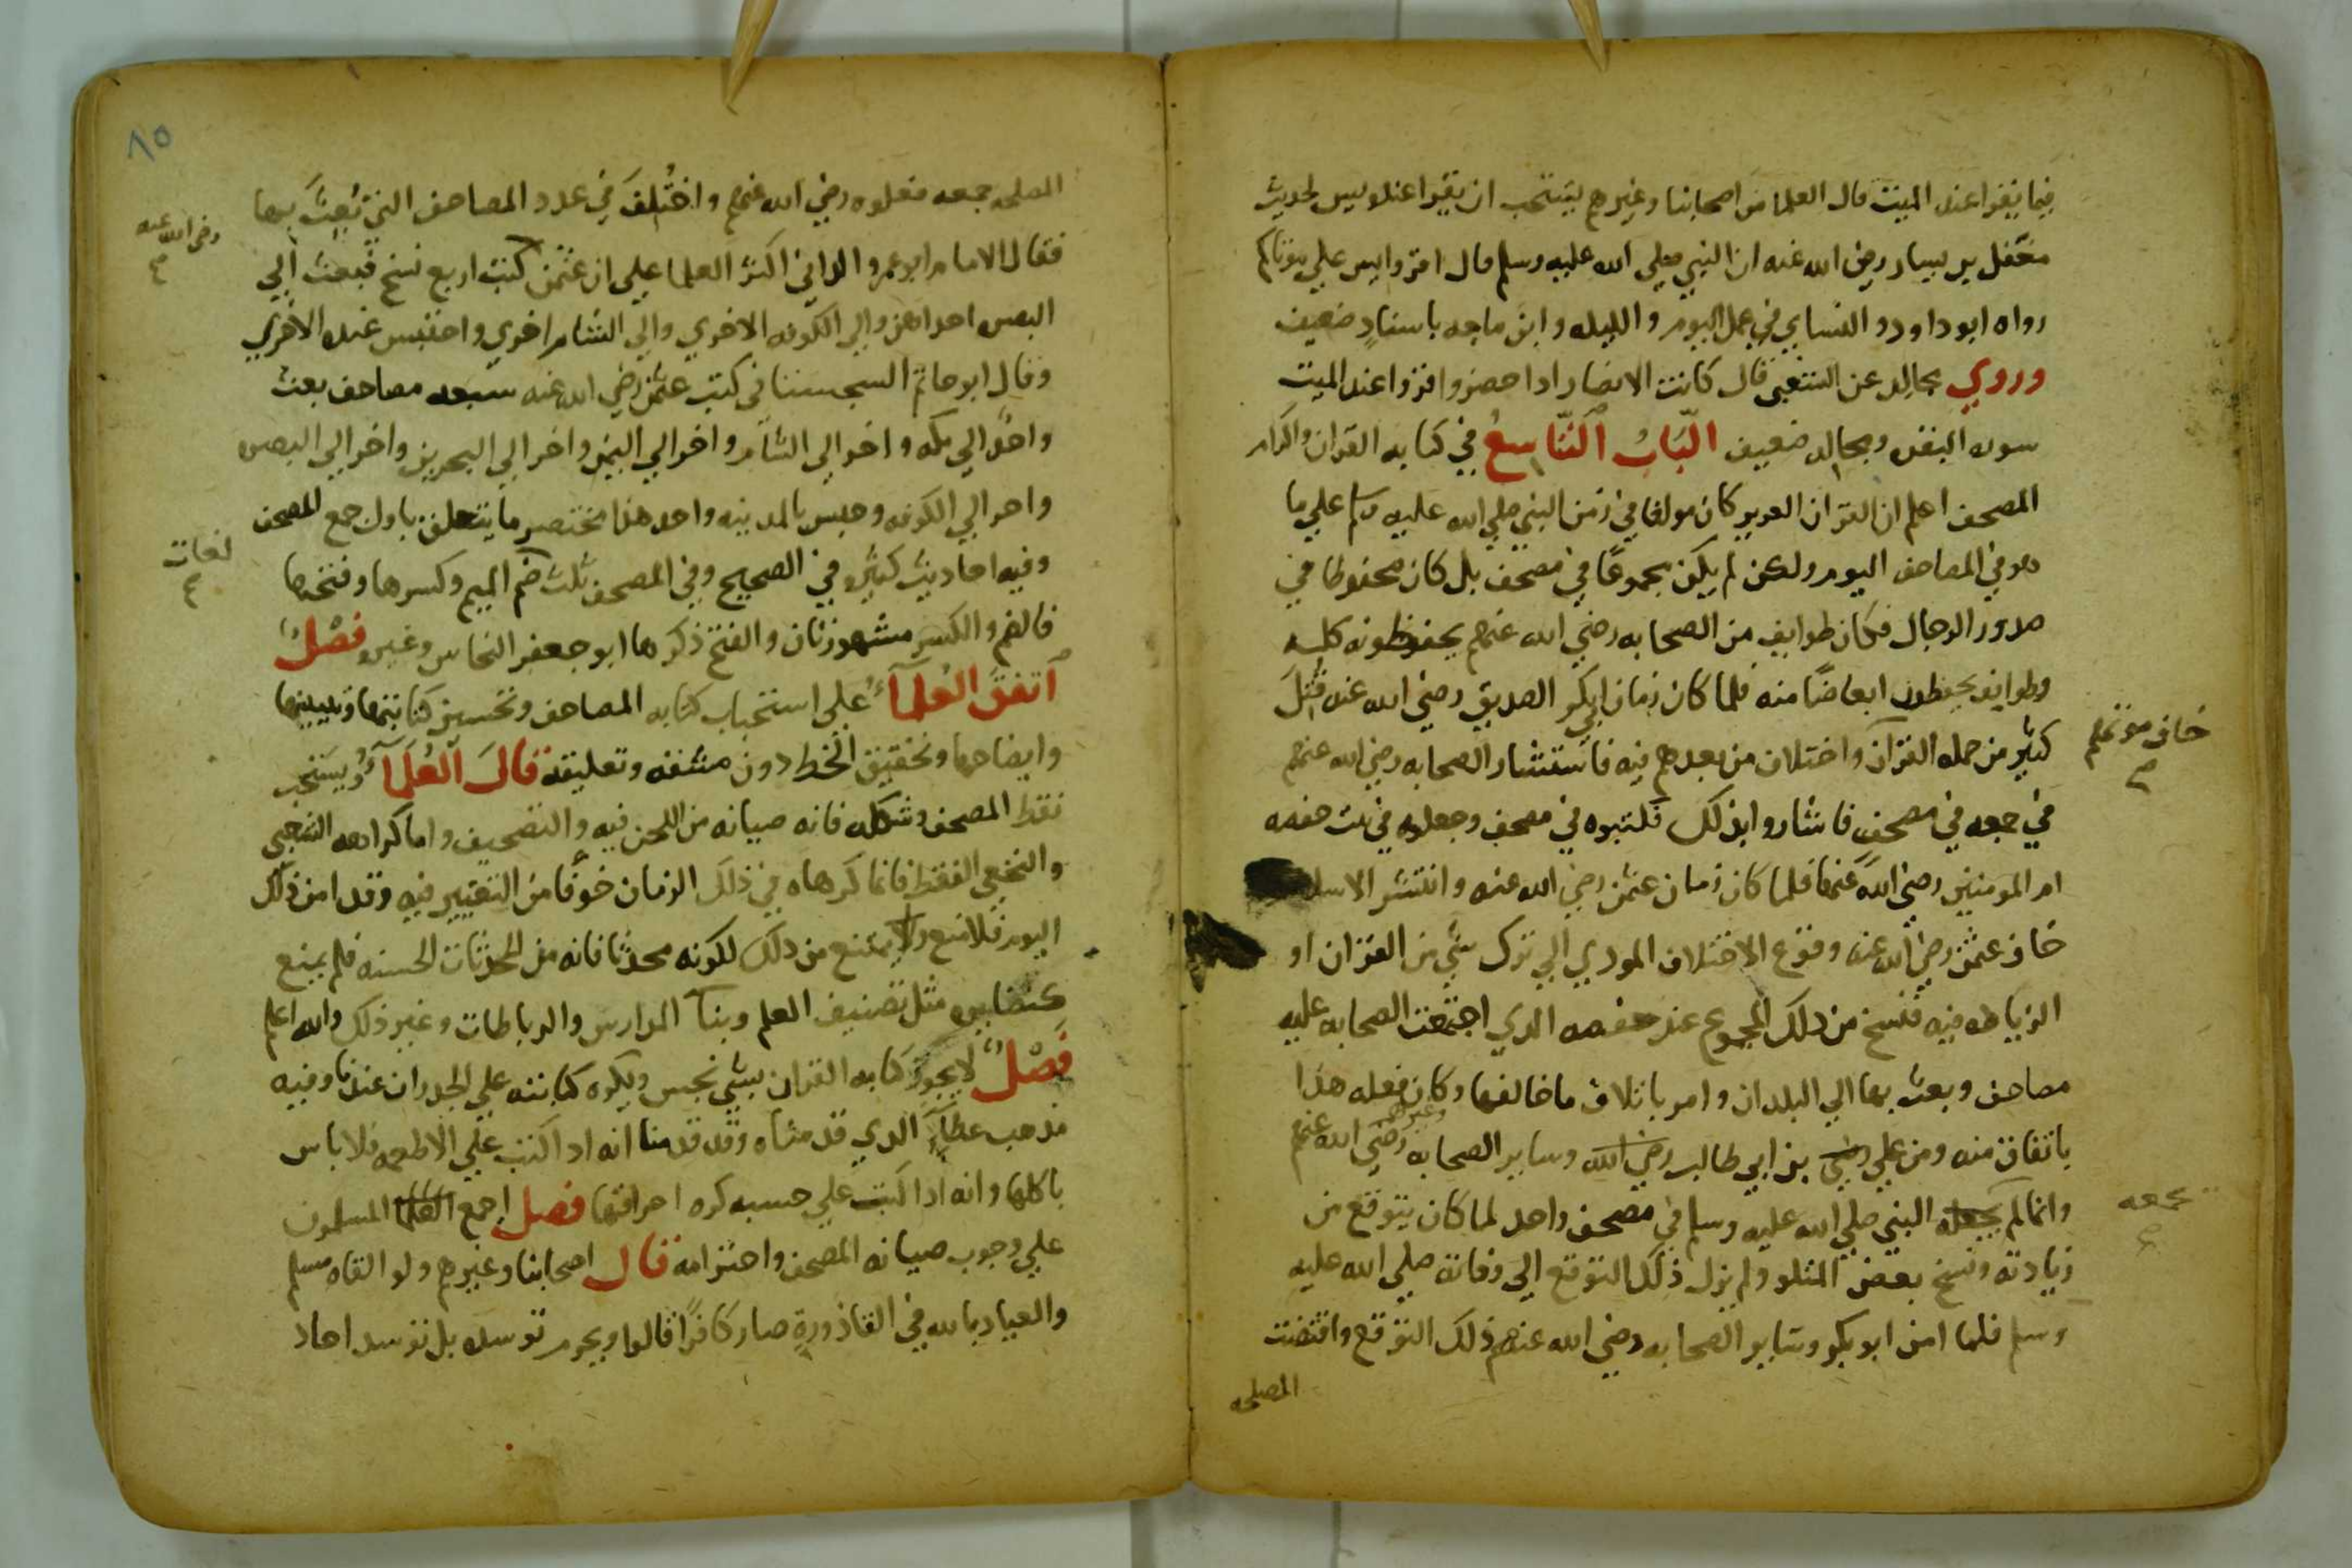 فيما يقرا عند الميت قال العلما من اصحابنا وغيرهم يستحب ان يقرا عنده يس لحديث
معقل بن يسار رضي الله عنه ان النبي صلي الله عليه وسلم قال اقروا يس علي موتاكم
رواه ابوداود والنساي في عمل اليوم والليله وابن ماجه باسناد ضعيف
وروي مجالد عن الشعبي قال كانت الانصار اذا حضروا قروا عند الميت
سوره البقره ومجالد ضعيف الباب التاسع في كتابه القران واكرام
المصحف اعلم ان القران العزيز كان مولفا في زمن النبي صلي الله عليه وسلم علي ما
هو في المصاحف اليوم ولكن لم يكن مجموعا في مصحف بل كان محفوظا في
صدور الرجال فكان طوايف من الصحابه رضي الله عنهم يحفظونه كله
وطوايف يحفظون ابعاضا منه فلما كان زمان ابي بكر الصديق رضي الله عنه قتل
كثير من حمله القرآن واختلاف من بعدهم فيه فاستشار الصحابه رضي الله عنهم
خاف موتهم
في جمعه في مصحف فاشاروا بذلك فكتبوه في مصحف وجعلوه في بيت حفصه
ام المومنين رضي الله عنها فلما كان زمان عثمن رضي الله عنه وانتشر الاسلام
خاف عثمن رضي الله عنه وقوع الاختلاف المودي الي ترك شي من القران او
الزياده فيه فنسخ من ذلك المجموع عند حفصه الذي اجتمعت الصحابه عليه
مصاحف وبعث بها الي البلدان وامر باتلاف ماخالفها وكان فعله هذا
باتفاق منه ومن علي رضي بن ابي طالب رضي الله وساير الصحابه وغيرهم رضي الله عنهم
وانما لم يجعله النبي صلي الله عليه وسلم في مصحف واحد لما كان يتوقع من
يجمعه
زيادته ونسخ بعض المتلو ولم يزل ذلك التوقع الي وفاته صلي الله عليه
وسلم فلما امن ابو بكر وساير الصحابه رضي الله عنهم ذلك التوقع واقتضت
المصلحه
٨٥
المصلحه جمعه فعلوه رضي الله عنهم واختلف في عدد المصاحف التي بعث بها
رضي الله عنه
فقال الامام ابو عمرو الداني اكثر العلما علي ان عثمن كتب اربع نسخ فبعث الي
البصره احداهن والي الكوفه الاخري والي الشام اخري واحتبس عنده الاخري
وقال ابو حاتم السجستاني كتب عثمن رضي الله عنه سبعه مصاحف بعث
واحدا الي مكه واخر الي الشام واخر الي اليمن واخر الي البحرين واخر الي البصره
واخر الي الكوفه وحبس بالمدينه واحد هذا مختصر ما يتعلق باول جمع المصحف
وفيه احاديث كثيره في الصحيح وفي المصحف ثلث ضم الميم وكسرها وفتحها
لغات
فالضم والكسر مشهورتان والفتح ذكرها ابو جعفر النحاس وغيره فصل
اتفق العلمآء علي استحباب كتابه المصاحف وتحسين كتابتها وتبيينها
وايضاحها وتحقيق الخط دون مشقه وتعليقه قال العلمآء ويستحب
نقط المصحف وشكله فانه صيانه من اللحن فيه والتصحيف واما كراهه الشعبي
والنخعي النقط فانما كرهاه في ذلك الزمان خوفا من التغيير فيه وقد امن ذلك
اليوم فلا منع ولا يمتنع من ذلك لكونه محدثا فانه من المحدثات الحسنه فلم يمنع
كنظايره مثل تصنيف العلم وبنآ المدارس والرباطات وغير ذلك والله اعلم
فصل لا يجوز كتابه القران بشي نجس ويكره كتابته علي الجدران عندنا وفيه
مذهب عطاء الذي قدمناه وقد قدمنا انه اذا كتب علي الاطعمه فلا باس
باكلها وانه اذا كتب علي خشبه كره احراقها فصل اجمع العلما المسلمون
علي وجوب صيانه المصحف واحترامه قال اصحابنا وغيرهم ولو القاه مسلم
والعياذ بالله في القاذورة صار كافرا قالوا ويحرم توسده بل توسد احاد